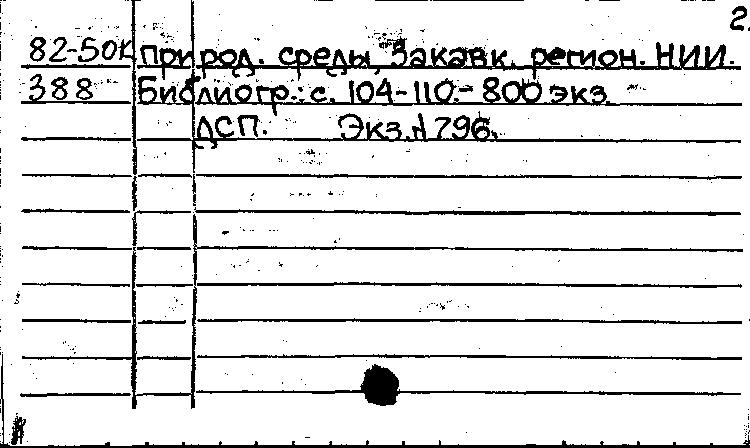 2.
82-50К природ. среды, Закавк. регион. НИИ.
388 Библиогр.: с. 104-110.- 800 экз.
ДСП. Экз.N796.